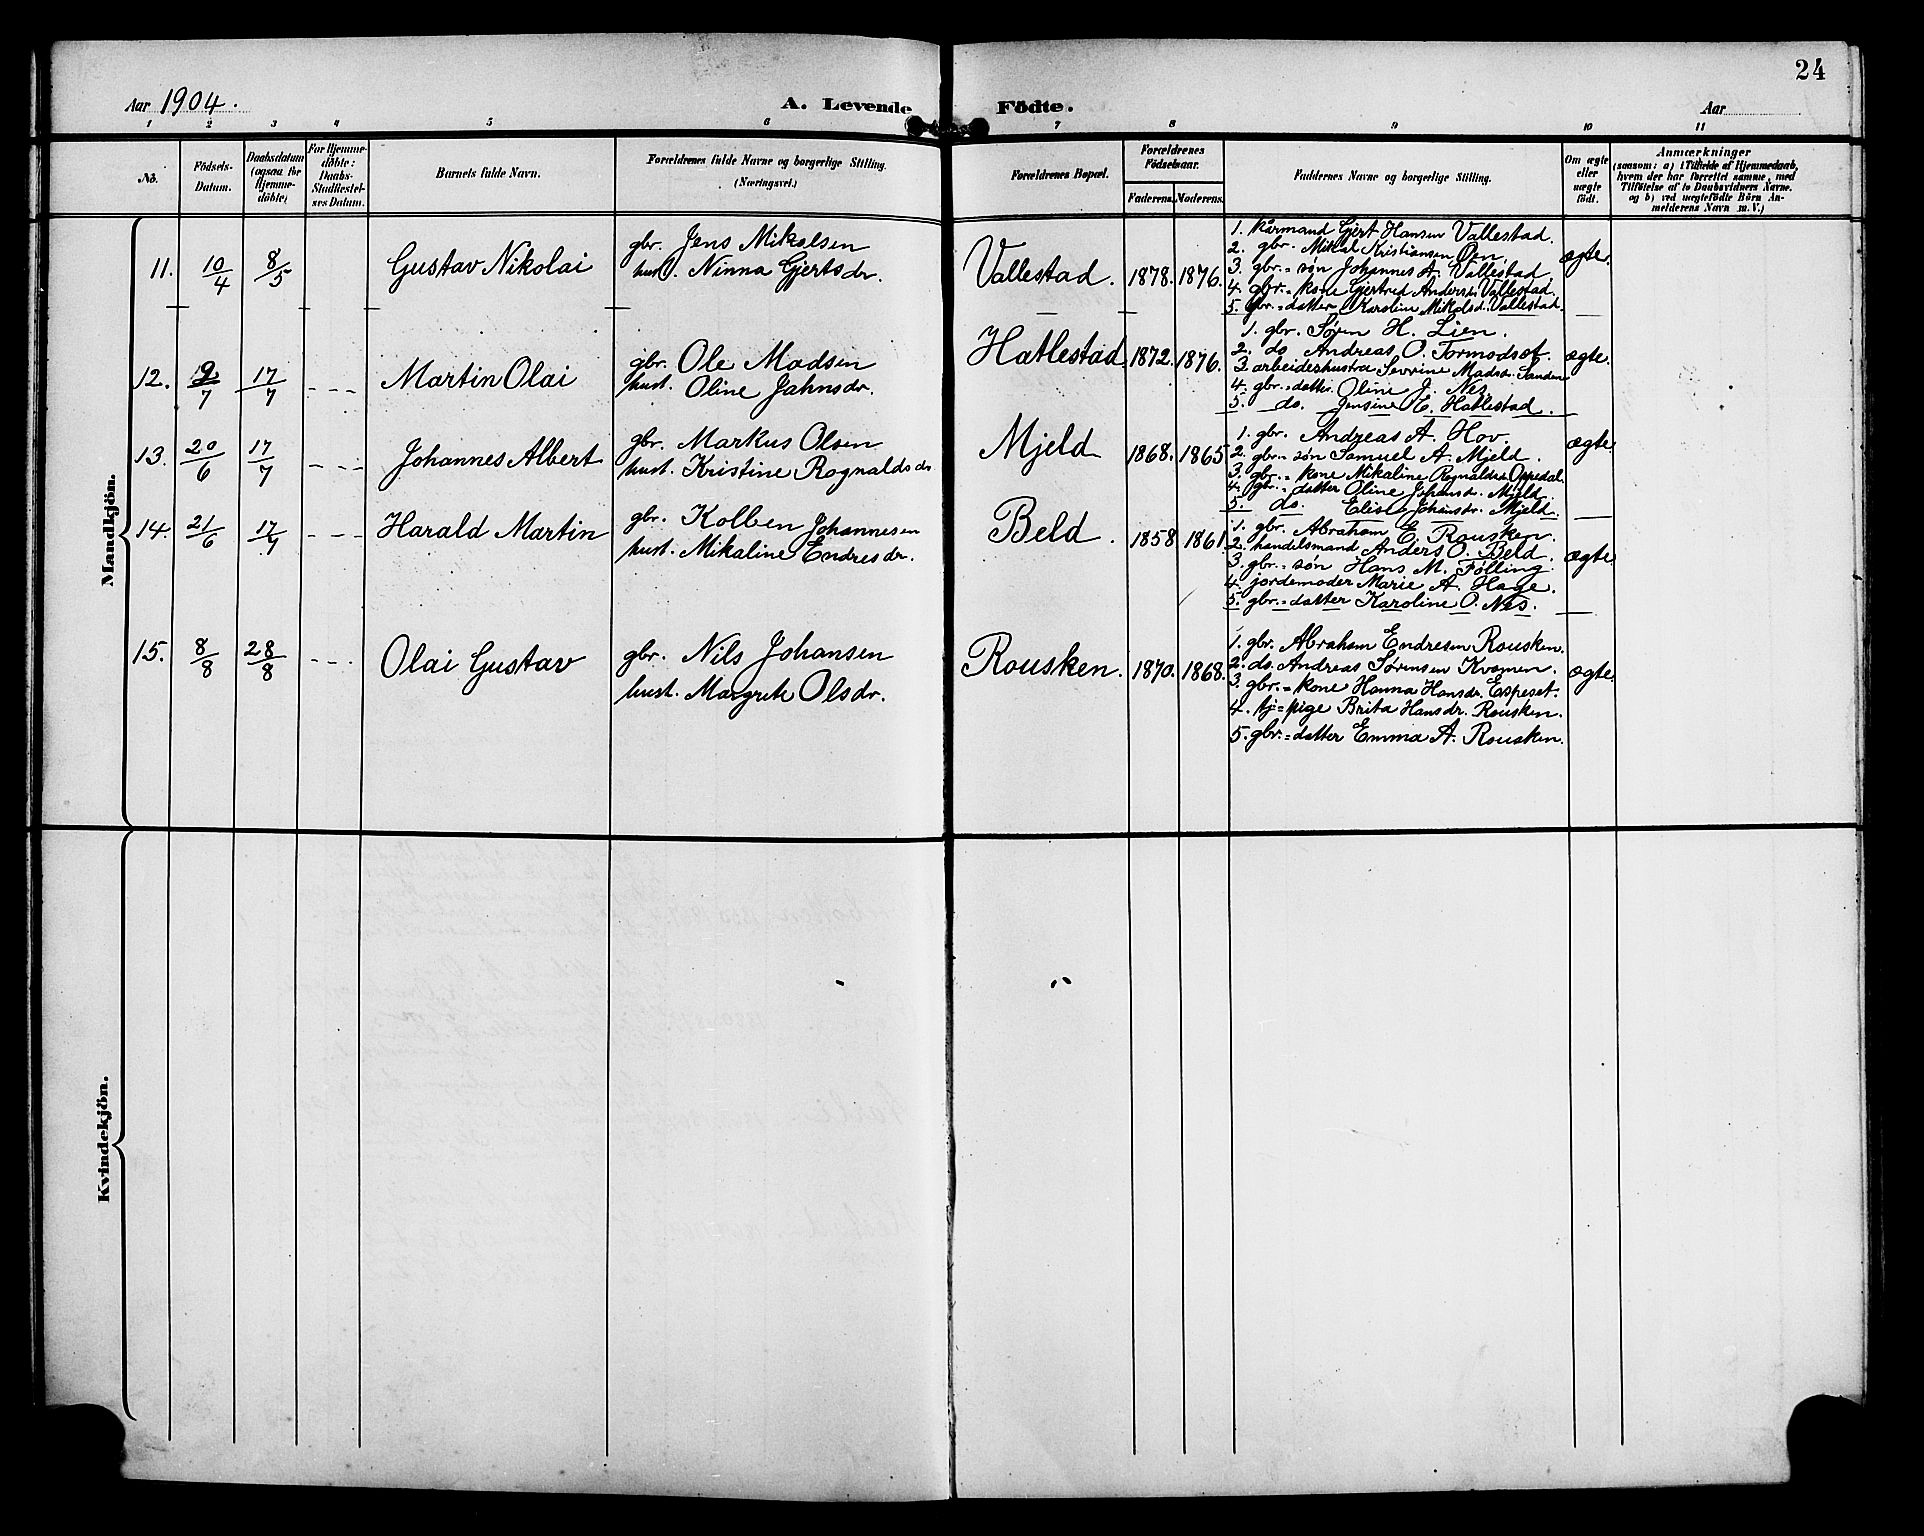 24
Aar 1904.
A. Levende Födte.
Aar
1 2 3 4 5 6 7 8 9 10 11
No.
Födsels-Datum.
Daabsdatum (ogsaa for Hjemme-döbte)
For Hjemme-döbte: Daabs-Stadfæstel-ses Datum.
Barnets fulde Navn.
Forældrenes fulde Navne og borgerlige Stilling.
(Næringsvei.)
Forældrenes Bopæl.
Forældrenes Födselsaar.
Faderens. Moderens.
Faddernes Navne og borgerlige Stilling.
Om ægte eller uægte födt.
Anmærkninger
(saasom: a) i Tilfælde af Hjemmedaab,
hvem der har forrettet samme, med
Tilföielse af to Daabsvidners Navne.
og b) ved uægtefödte Börn An-
melderens Navn m. V.)
Mandkjön.
11. 10/4 8/5 Gustav Nikolai
gbr. Jens Mikalsen
hust. Ninna Gjertsdr.
Vallestad. 1878. 1876.
1. Kårmand Gjert Hansen Vallestad.
2. gbr. Mikal Kristiansen Øen.
3. gbr.=søn Johannes A. Vallestad.
4. gbr.=kone Gjertrud Andersdr. Vallestad.
5. gbr.=datter Karoline Mikalsd. Vallestad.
ægte.
12. 9/7 17/7 - - - Martin Olai
gbr. Ole Madsen
hust. Oline Jahnsdr.
Hatlestad. 1872. 1876.
1. gbr. Søren H. Lien.
2. do Andreas O. Tormodset.
3. arbeiderhustra Sevrine Madsdr. Sanden
4. gbr.=datter Oline J. Nes.
5. do. Jensine E. Hatlestad.
ægte.
13. 20/6 17/7 - - - Johannes Albert
gbr. Markus Olsen
hust. Kristine Rognaldsdr
Mjeld 1868. 1865
1. gbr. Andreas A. Hov.
2. gbr.=søn Samuel A. Mjeld.
3. gbr.=kone Mikaline Rognaldsd. Oppedal.
4. gbr.=datter Oline Johansdr. Mjeld.
5. do. Elise Johansdr. Mjeld.
ægte.
14. 21/6 17/7 - - - Harald Martin
gbr. Kolben Johannesen
hust. Mikaline Endresdr.
Beld. 1858 1861.
1. gbr. Abraham E. Rousken.
2. handelsmand Anders O. Beld.
3. gbr.=søn Hans M. Følling.
4. jordemoder Marie A. Hage.
5. gbr.=datter Karoline O. Nes.
ægte
15. 8/8 28/8 - - - Olai Gustav
gbr. Nils Johansen
hust. Margrete Olsdr.
Rousken. 1870. 1868.
1. gbr. Abraham Endresen Rousken.
2. do. Andreas Sørensen Kvamen.
3. gbr.=kone Hanna Hansdr. Espeset.
4. tj=pige Brita Hansdr. Rousken.
5. gbr.=datter Emma A. Rousken.
ægte.
Kvindekjön.